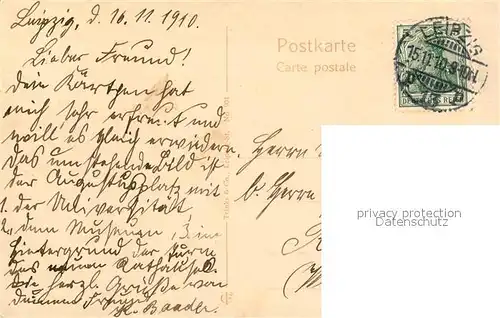 Leipzig, d. 16. 11. 1910.
Lieber Freund!
Dein Kärtchen hat
mich sehr erfreut und
will es gleich erwidern.
Das umstehende Bild ist
der Augustusplatz mit
1. der Universität,
2. dem Museum, 3. im
Hintergrund der Turm
des neuen Rathauses.
herzl. Grüße von
deinem Freund
K. Baader.
Postkarte
Carte postale
LEIPZIG
15.11.10.
Herrn
b. Herrn
privacy protection
Datenschutz